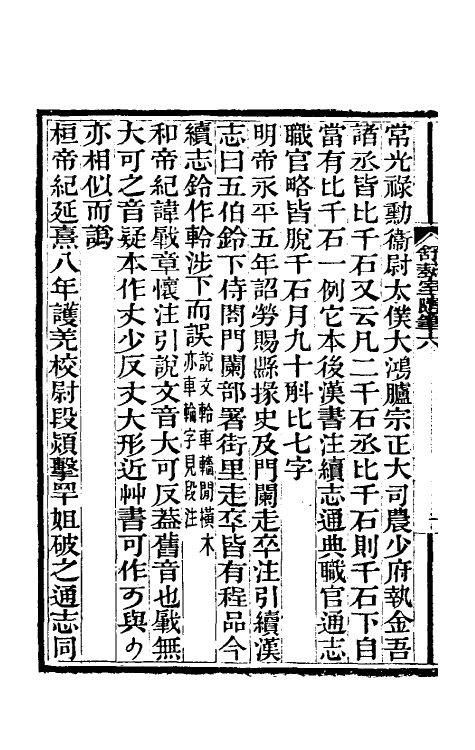 舒埶室隨筆六
常光祿勳衞尉太僕大鴻臚宗正大司農少府執金吾
諸丞皆比千石又云凡二千石丞比千石則千石下自
當有比千石一例它本後漢書注續志通典職官通志
職官略皆脫千石月九十斛比七字
明帝永平五年詔勞賜縣掾史及門闌走卒注引續漢
志曰五伯鈴下侍閤門闌部署街里走卒皆有程品今
續志鈴作軨涉下而誤說文軨車轖閒橫木亦車輪字見段注
和帝紀諱肈章懷注引說文音大可反葢舊音也肈無
大可之音疑本作丈少反丈大形近艸書可作可與少
亦相似而譌
桓帝紀延熹八年護羌校尉段熲擊罕姐破之通志同